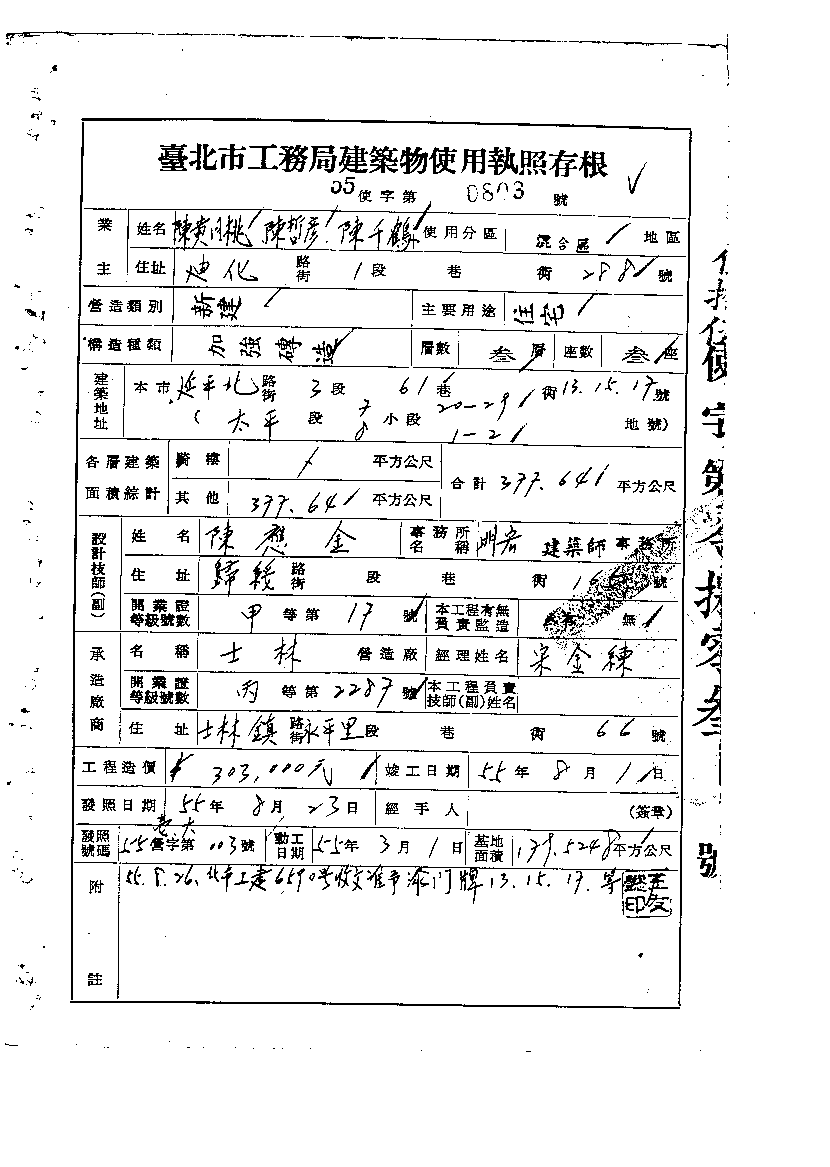 臺北市工務局建築物使用執照存根
55使字第 0803 號
業主 姓名 陳黄月桃 陳哲彦 陳千鶴 使用分區 混合區 地區
住址 迪化 路街 1段 巷 衖 288 號
營造類別 新建 主要用途 住宅
構造種類 加強磚造 層數 叁層 座數 叁座
建築地址 本市 延平北 路街 3段 61巷 衖 13.15.17號
(太平 段 7 8 小段 20-29 1-2 地號)
各層建築面積綜計 騎樓 平方公尺 合計 377.64 平方公尺
其他 377.64 平方公尺
設計技師(副) 姓名 陳應金 事務所名稱 建築師事務所
住址 歸綏 路街 段 巷 衖 號
開業證等級號數 甲等第17號 本工程有無負責監造 無
承造廠商 名稱 士林 營造廠 經理姓名 宋金練
開業證等級號數 丙等第2287號 本工程負責技師(副)姓名
住址 士林鎮 路街 永平里 段 巷 衖 66 號
工程造價 303,000元 竣工日期 55年8月1日
發照日期 55年8月23日 經手人 (簽章)
發照號碼 55營字第003號 動工日期 55年3月1日 基地面積 179.5248平方公尺
附註 55.8.26. 北市工建6590號收文准予 門牌13.15.17.等